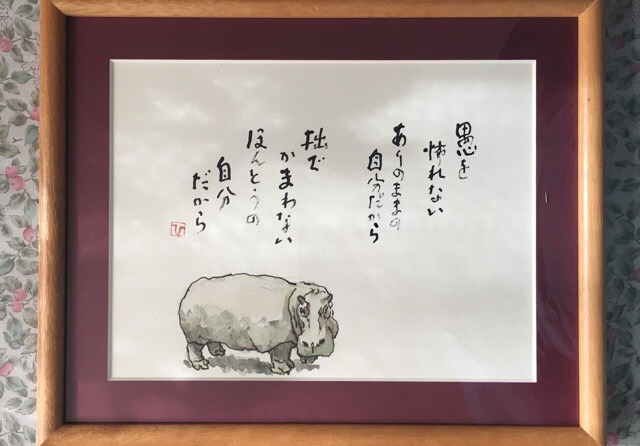 愚を
怖れない
ありのままの
自分だから
拙で
かまわない
ほんとうの
自分
だから